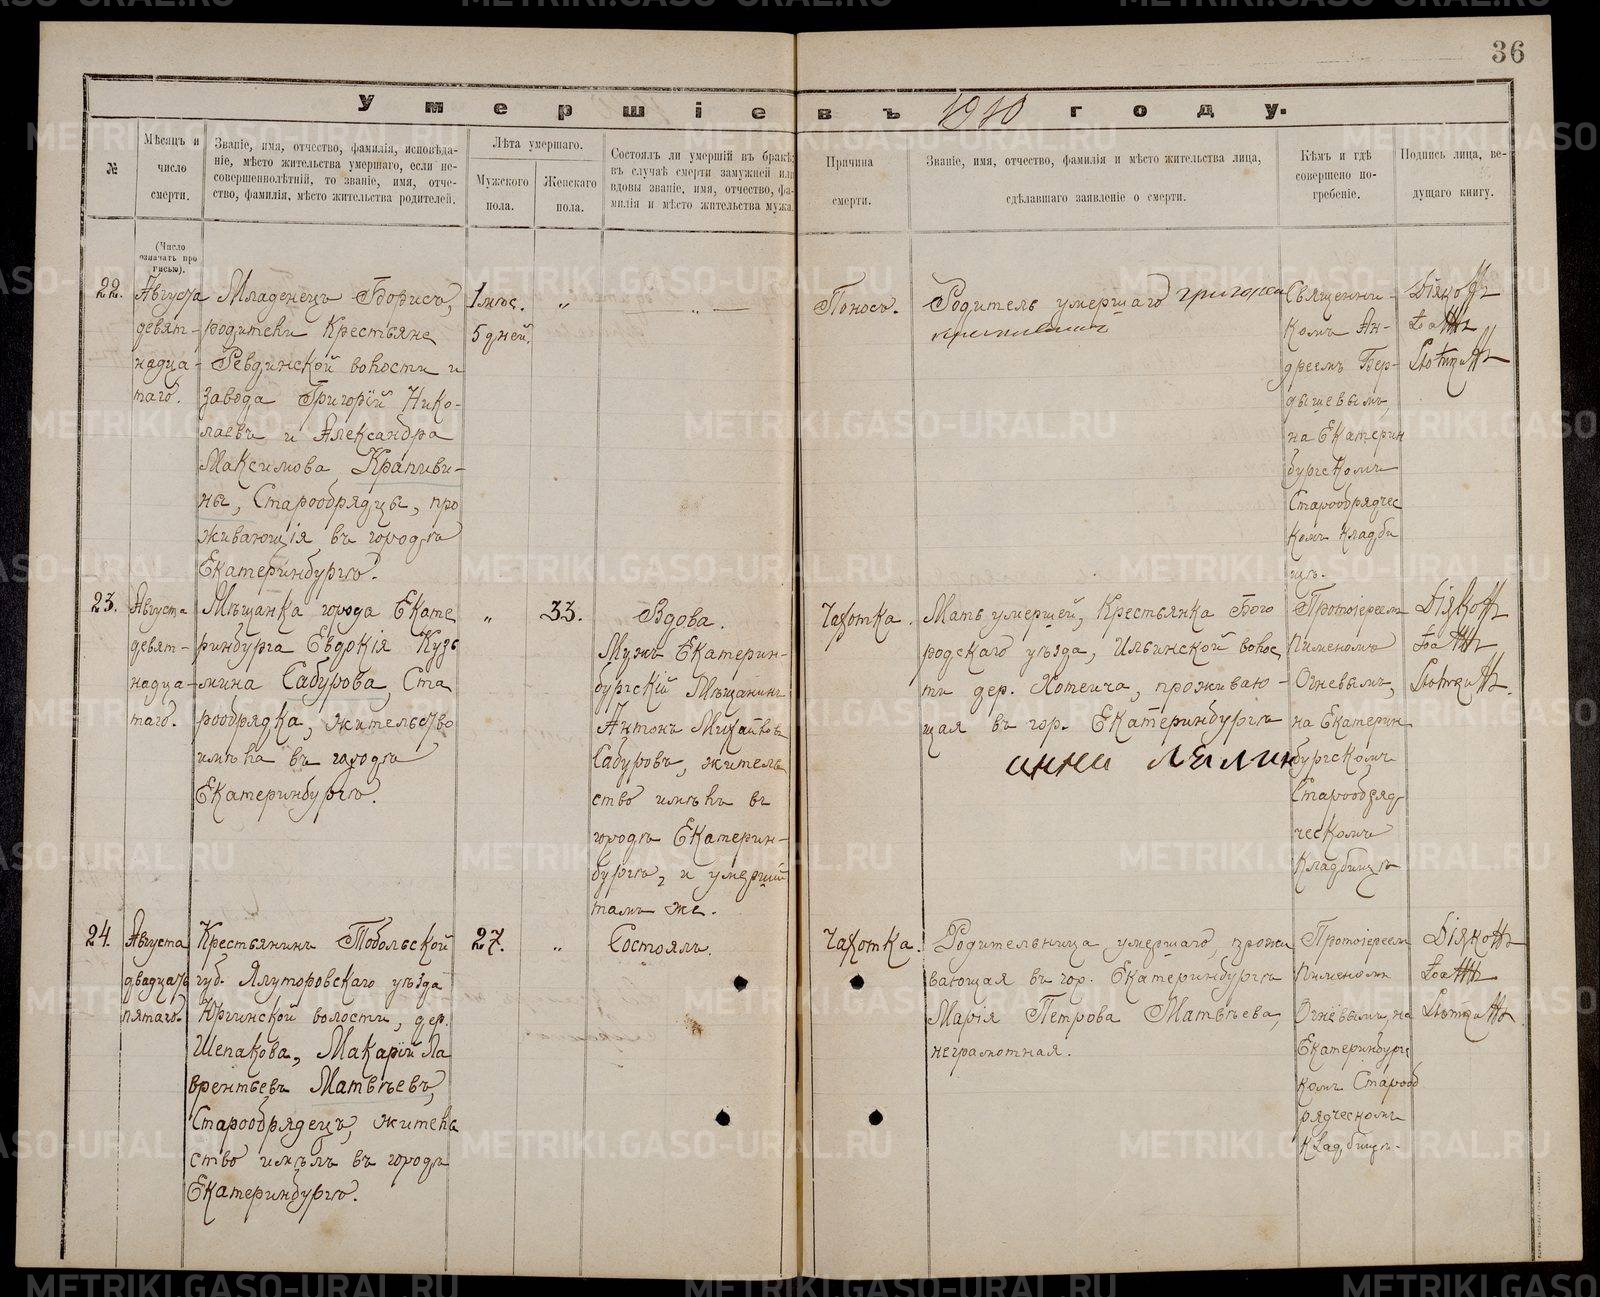 36
Умершіе въ 1910 году.
№
Мѣсяцъ и
число
смерти.
Званіе, имя, отчество, фамилія, исповѣда-
ніе, мѣсто жительства умершаго, если не-
совершеннолѣтній, то званіе, имя, отче-
ство, фамилія, мѣсто жительства родителей.
Лѣта умершаго.
Мужского
пола.
Женскаго
пола.
Состоялъ ли умершій въ бракѣ;
въ случаѣ смерти замужней или
вдовы званіе, имя, отчество, фа-
милія и мѣсто жительства мужа.
Причина
смерти.
Званіе, имя, отчество, фамилія и мѣсто жительства лица,
сдѣлавшаго заявленіе о смерти.
Кѣмъ и гдѣ
совершено по-
гребеніе.
Подпись лица, ве-
дущаго книгу.
(Число
означать про
писью).
22.
Августа
девят-
надца-
таго.
Младенецъ Борисъ,
родители Крестьяне
Ревдинской волости и
завода Григорій Нико-
лаевъ и Александра
Максимова Крапиви-
ны, Старообрядцы, про
живающія въ городѣ
Екатеринбургѣ.
1 мѣс.
5 дней.
„
„
Поносъ.
Родитель умершаго Григорій
Священни-
комъ Ан-
дреемъ Бер-
дышевымъ,
на Екатерин
бургскомъ
Старообрядчес
комъ кладби
щѣ.
23.
Августа
девят-
надца-
таго.
Мѣщанка города Екате
ринбурга Евдокія Кузь
мина Сабурова, Ста
рообрядка, жительство
имѣла въ городѣ
Екатеринбургѣ.
„
33.
Вдова.
Мужъ Екатерин-
бургскій Мѣщанинъ
Антонъ Михайловъ
Сабуровъ, житель
ство имѣлъ въ
городѣ Екатерин-
бургѣ, и умершій
тамъ же.
Чахотка.
Мать умершей, Крестьянка Бого
родскаго уѣзда, Ильинской волос
ти дер. Хотеича, проживаю-
щая въ гор. Екатеринбургѣ
Протоіереем
Пименомъ
Огневымъ,
на Екатерин
бургскомъ
Старообряд
ческомъ
Кладбищѣ
24.
Августа
двадцать
пятаго.
Крестьянинъ Тобольской
губ. Ялуторовскаго уѣзда
Юргинской волости, дер.
Шепакова, Макарій Ла
врентьевъ Матвѣевъ,
Старообрядецъ, житель
ство имѣлъ въ городѣ
Екатеринбургѣ.
27.
„
Состоялъ.
Чахотка.
Родительница умершаго, прожи
вающая въ гор. Екатеринбургѣ
Марія Петрова Матвѣева,
неграмотная.
Протоіереем
Пименомъ
Огневымъ, на
Екатеринбургс
комъ Старооб
рядческомъ
Кладбищѣ.
METRIKI.GASO-URAL.RU